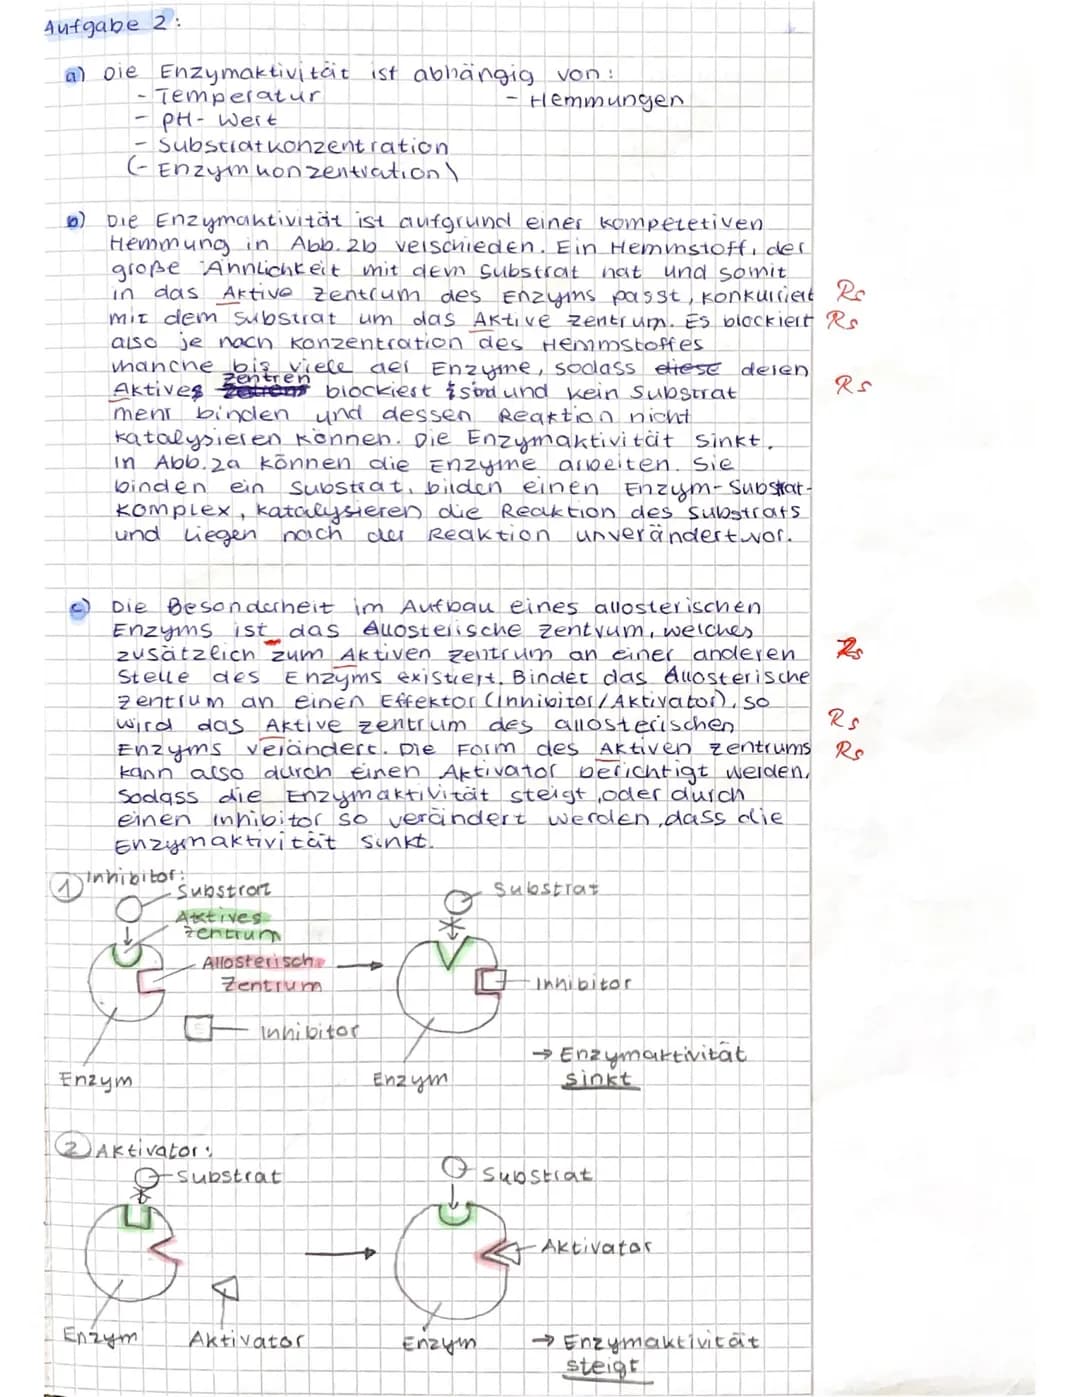 Aufgabe 2:
a) Die Enzymaktivität ist abhängig von:
- Temperatur - Hemmungen
- pH-Wert
- Substratkonzentration
(- Enzymkonzentration)
b) Die Enzymaktivität ist aufgrund einer kompetetiven
Hemmung in Abb. 2b verschieden. Ein Hemmstoff, der
große Ähnlichkeit mit dem Substrat hat und somit
in das Aktive Zentrum des Enzyms passt, konkurriert Rs
mit dem Substrat um das Aktive Zentrum. Es blockiert Rs
also je nach Konzentration des Hemmstoffes
manche bis viele der Enzyme, sodass diese deren
Aktives Zentren blockiert sind und kein Substrat Rs
mehr binden und dessen Reaktion nicht
katalysieren können. Die Enzymaktivität sinkt.
In Abb. 2a können die Enzyme arbeiten. Sie
binden ein Substrat, bilden einen Enzym-Substrat-
komplex, katalysieren die Reaktion des Substrats
und liegen nach der Reaktion unverändert vor.
c) Die Besonderheit im Aufbau eines allosterischen
Enzyms ist das Allosterische Zentrum, welches
zusätzlich zum Aktiven Zentrum an einer anderen Rs
Stelle des Enzyms existiert. Bindet das Allosterische
Zentrum an einen Effektor (Inhibitor/Aktivator), so
wird das Aktive Zentrum des allosterischen Rs
Enzyms verändert. Die Form des Aktiven Zentrums Rs
kann also durch einen Aktivator berichtigt werden,
sodass die Enzymaktivität steigt, oder durch
einen Inhibitor so verändert werden, dass die
Enzymaktivität sinkt.
1 Inhibitor:
Substrat
Substrat
Aktives
Zentrum
Allosterisch
Zentrum
Inhibitor
Inhibitor
→ Enzymaktivität
sinkt
Enzym
Enzym
2 Aktivator:
Substrat
Substrat
Aktivator
Enzym
Aktivator
Enzym
→ Enzymaktivität
steigt